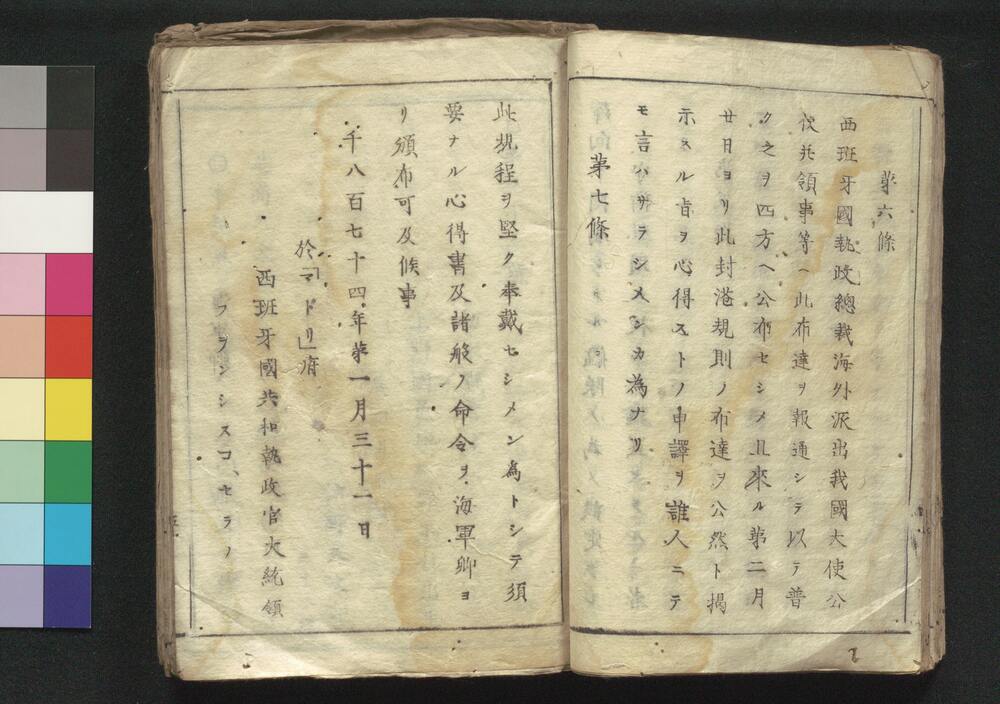 第六條
西班牙國執政總裁海外派出我國大使公
使并領事等ヘ此布達ヲ報通シテ以テ普
ク之ヲ四方ヘ公布セシメ且來ル第二月
廿日ヨリ此封港規則ノ布達ヲ公然ト揭
示スル旨ヲ心得ストノ申譯ヲ誰人ニテ
モ言ハサラシメンカ為ナリ
第七條
此規程ヲ堅ク奉戴セシメン為トシテ須
要ナル心得書及諸般ノ命令ヲ海軍卿ヨ
リ頒布可及候事
千八百七十四年第一月三十一日
於「マドリ」府
西班牙國共和執政官大統領
フランシスコ、セラノ